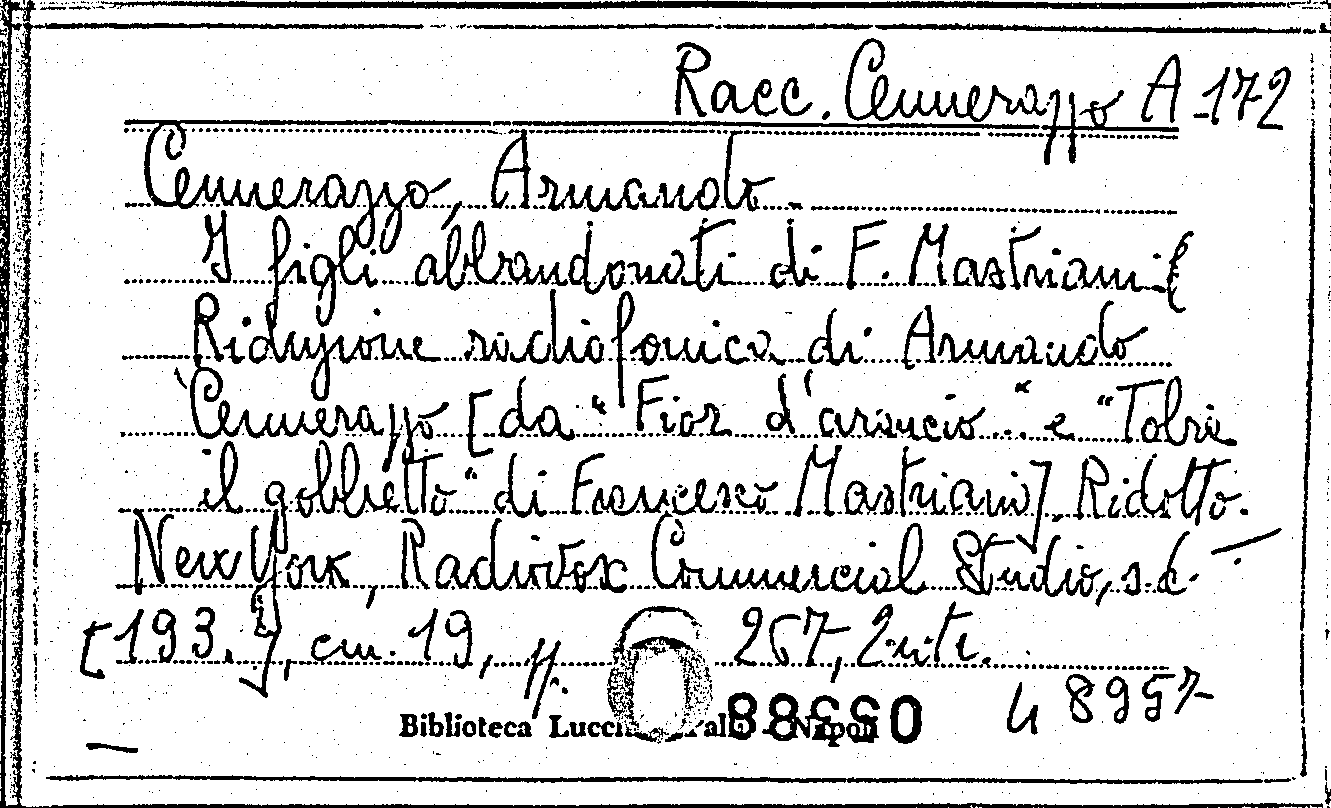 Racc. Cennerazzo A-172
Cennerazzo, Armando.
I figli abbandonati di F. Mastriani.
Riduzione radiofonica di Armando
Cennerazzo [da "Fior d'arancio..." e "Tobia
il gobbetto" di Francesco Mastriani]. Ridotto.
New York, Radiovox Commercial Studio, s.d.
[193.?], cm. 19, pp. 267, 2 ritr.
Biblioteca Lucchesi Palli - Napoli
U 8957